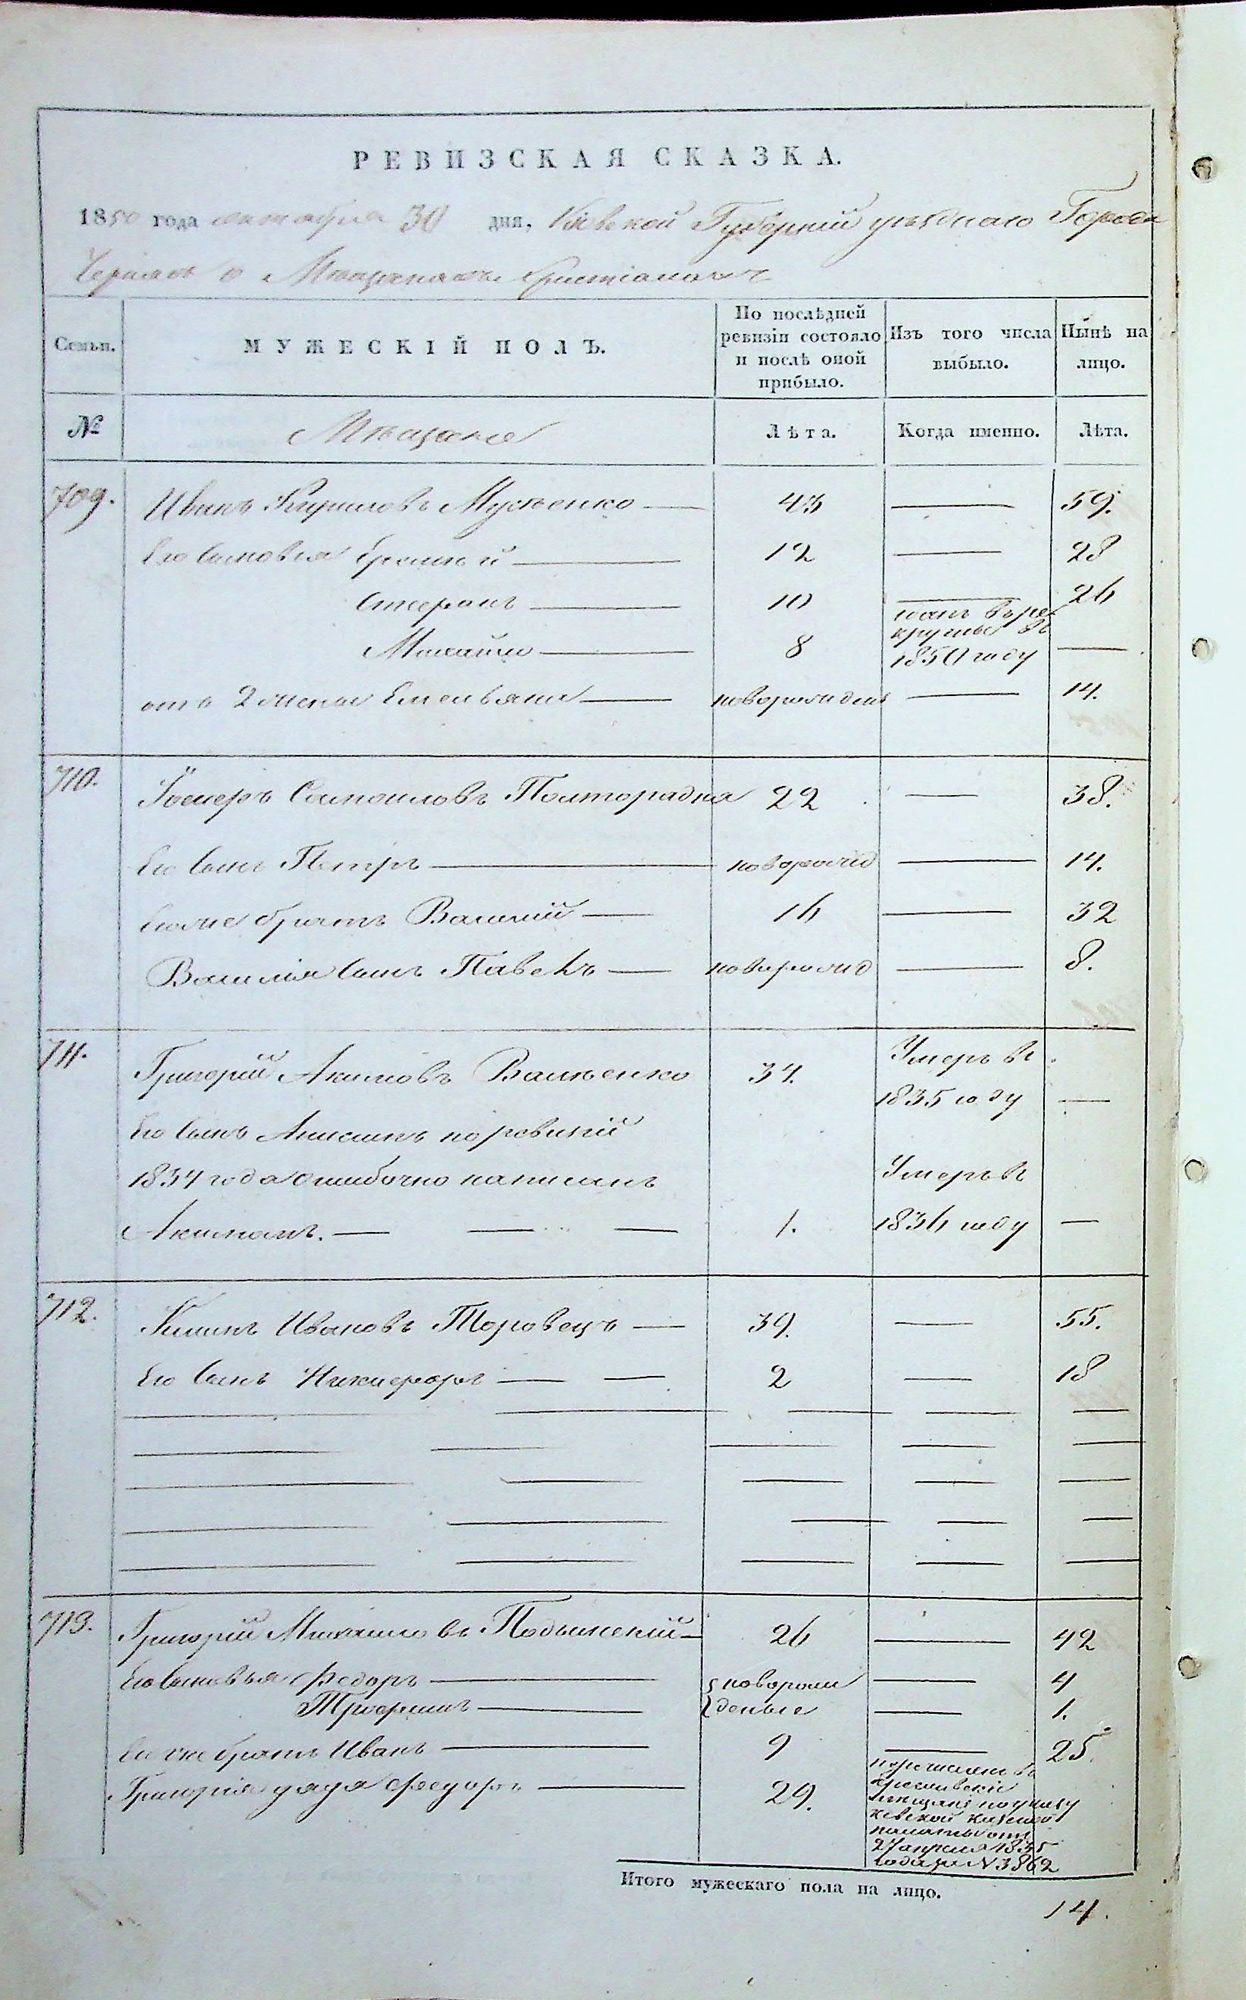 РЕВИЗСКАЯ СКАЗКА.
1850 года октября 30 дня, Кіевской Губерніи уѣзднаго Города
Черкасъ о Мѣщанахъ Христіанахъ
Семьи. МУЖЕСКІЙ ПОЛЪ. По послѣдней ревизіи состояло и послѣ оной прибыло. Изъ того числа выбыло. Нынѣ на лицо.
№ Мѣщане Лѣта. Когда именно. Лѣта.
709. Иванъ Кириловъ 43 — 59.
Его Сыновья 12 — 28
Стефанъ — 10 — 26
Михайло — 8 въ рекруты въ 1850 году —
отъ 2 жены Емельянъ — новорожден — 14.
710. Самойловъ 22 — 38.
Его Сынъ Петръ — новорожд — 14.
его же братъ Василій — 16 — 32
Василія Сынъ Павелъ — новорожд — 8.
711. Григорій Акимовъ Васенко 34. Умеръ въ
1835 году —
Его Сынъ по ревизіи
1834 года ошибочно написанъ Умеръ въ
Акимомъ. — — — 1. 1836 году —
712. Ивановъ Торовецъ — 39. — 55.
Его Сынъ Никифоръ — — 2 — 18
713. Григорій Михайловъ — 26 — 42
Его Сыновья Федоръ — новорож — 4
Трофимъ — денные — 1.
Его же братъ Иванъ — 9 — 25.
Григорія дядя Федоръ — 29. перечисленъ въ
мѣщане по указу
кіевской казенной
палаты отъ
27 апреля 1845
года за N 3862
Итого мужескаго пола на лицо.
14.